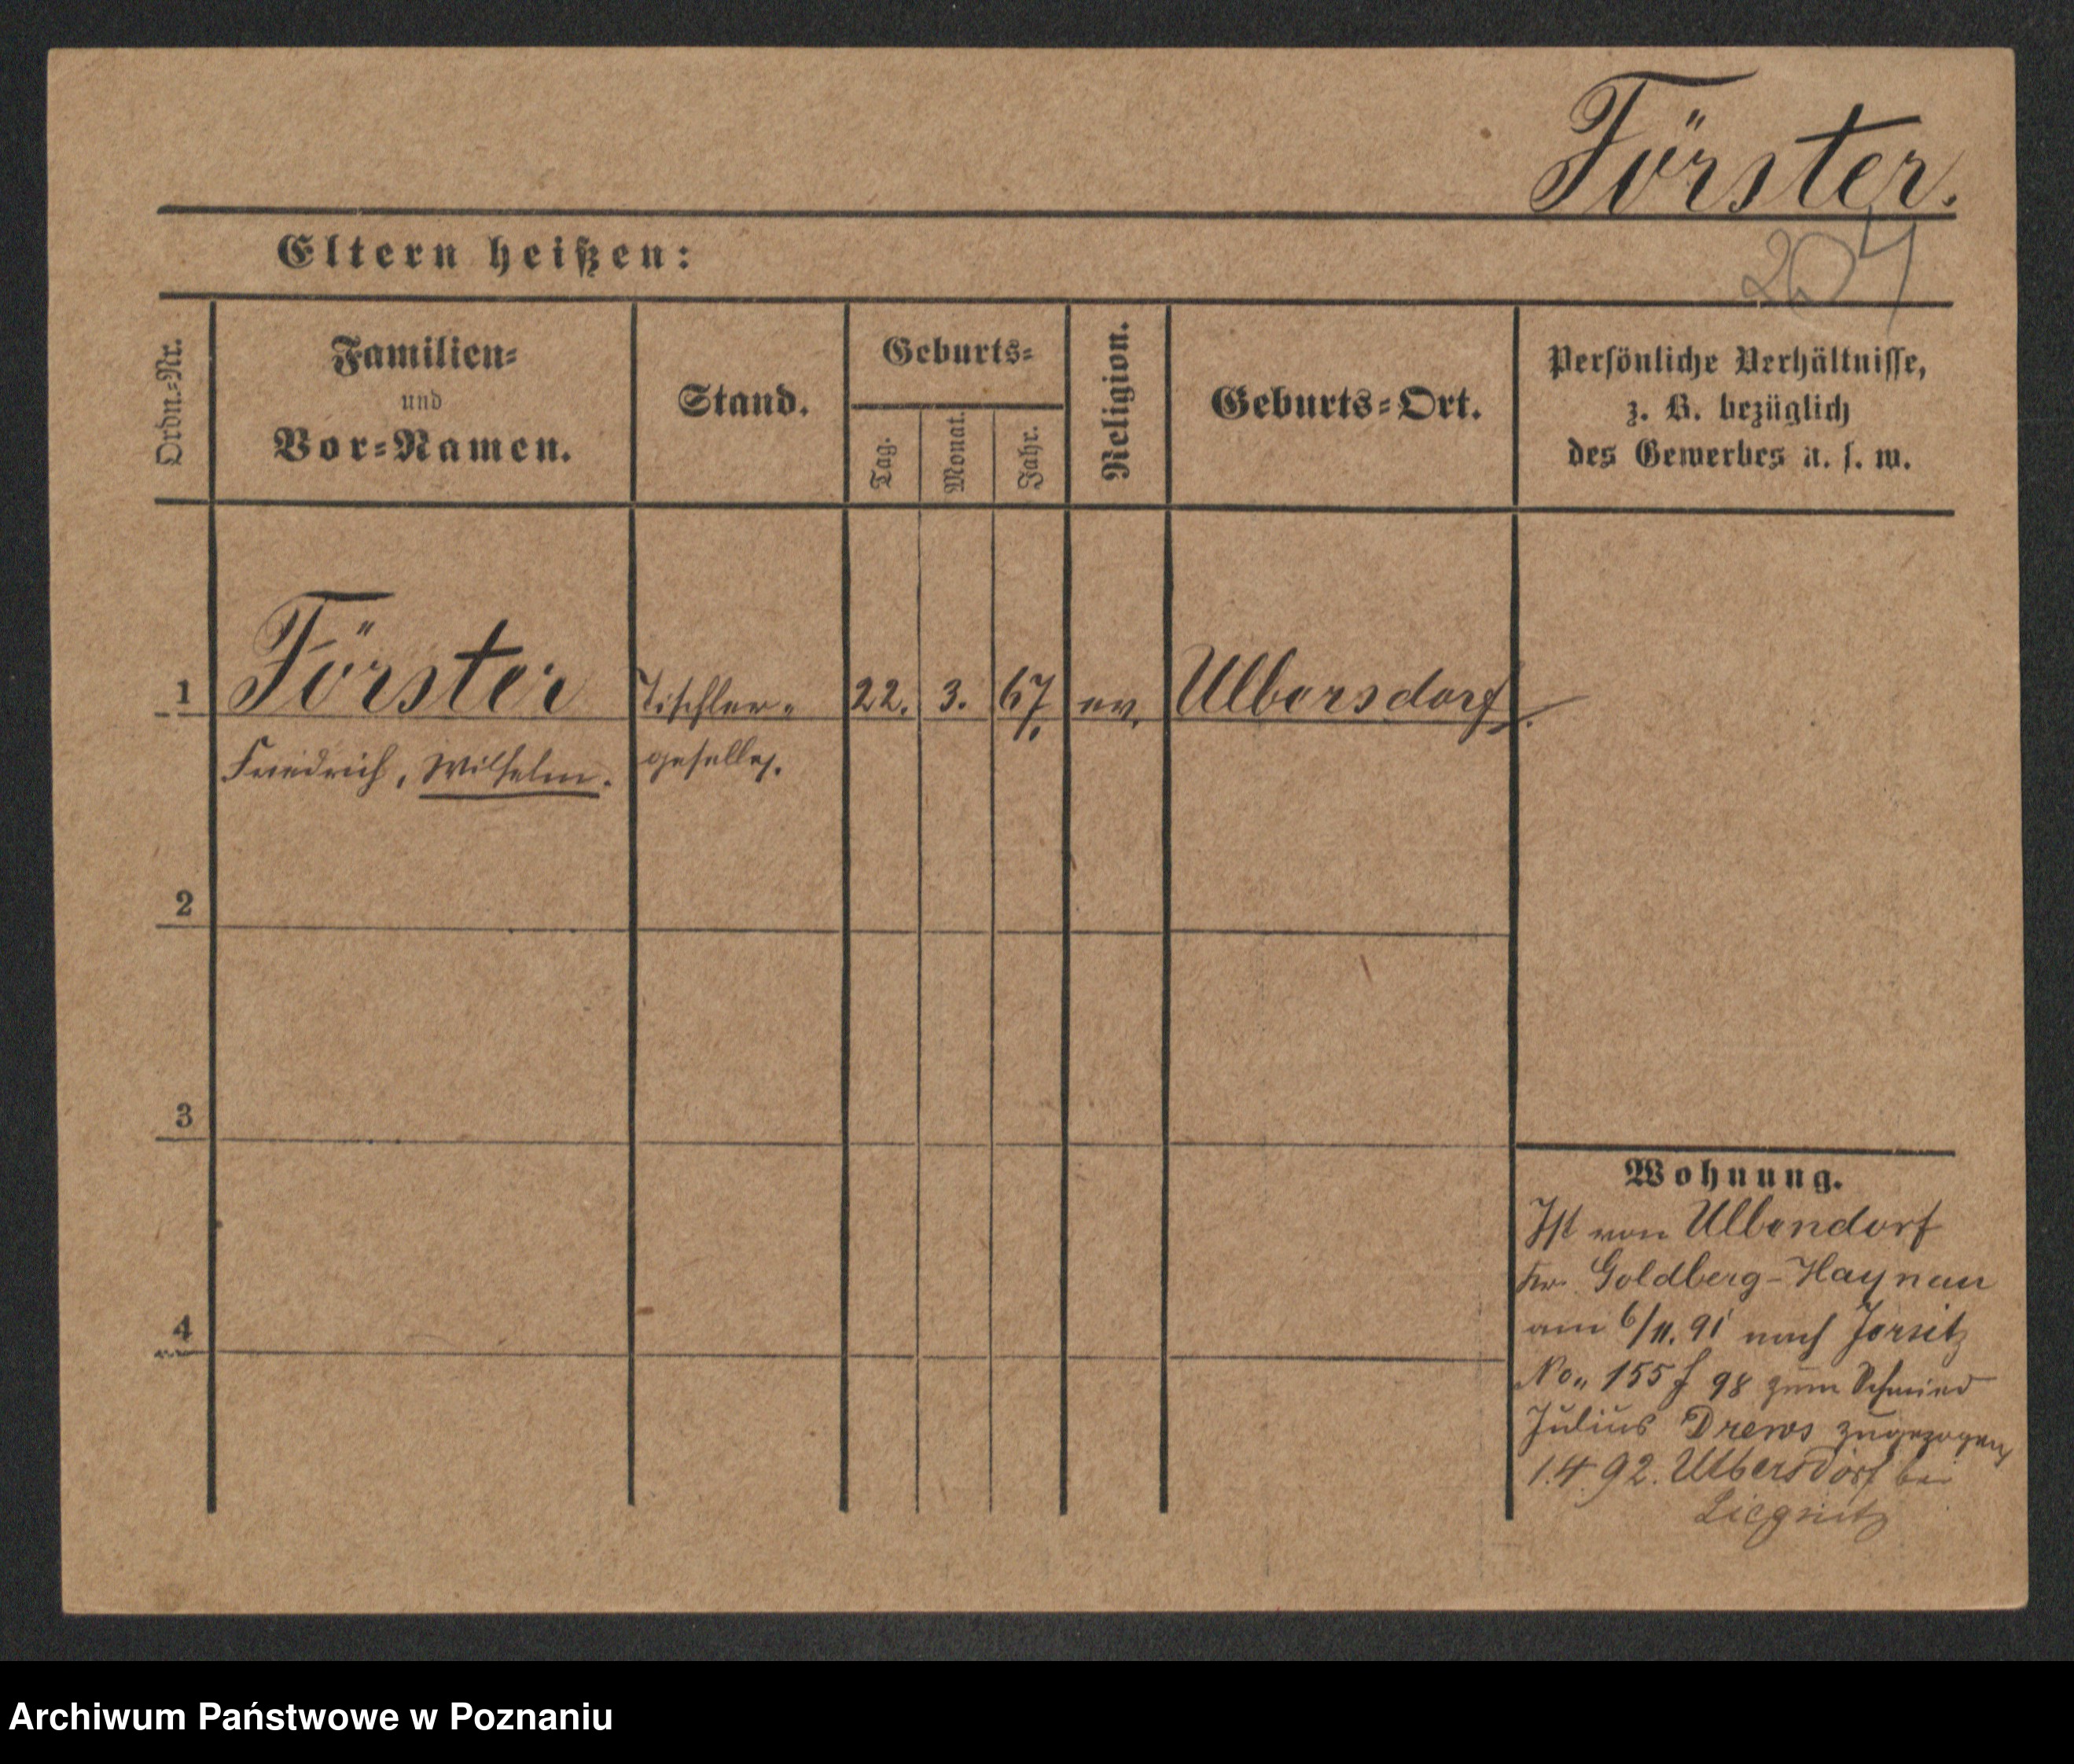 Förster.
204
Eltern heißen:
Ordn.=Nr.
Familien=
und
Vor=Namen.
Stand.
Geburts=
Tag.
Monat.
Jahr.
Religion.
Geburts=Ort.
Persönliche Verhältnisse,
z. B. bezüglich
des Gewerbes u. s. w.
1
Förster
Tischler=
22.
3.
67.
ev.
Ulbersdorf.
Friedrich, Wilhelm.
geselle.
2
3
4
Wohnung.
Ist von Ulbendorf
Kr. Goldberg-Haynau
am 6/11. 91 nach Jersitz
No. 155 f 98 zum Schmied
Julius Drews zugezogen
1.4.92. Ulbersdorf bei
Liegnitz
Archiwum Państwowe w Poznaniu